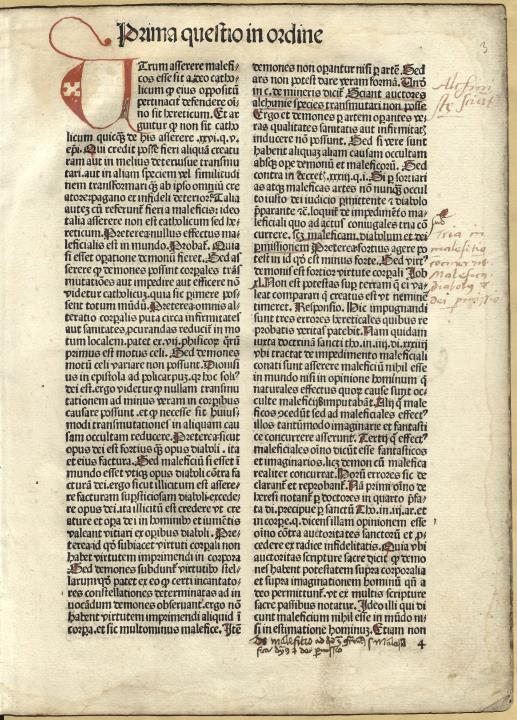 Prima questio in ordine
3
UTrum asserere malefi-
cos esse sit adeo catho-
licum ꝙ eius oppositū
pertinaciter defendere oī-
no sit hereticum. Et ar
guitur ꝙ non sit catho
licum quicꝗ̃ de his asserere .xxvi. q. v.
ep̄i. Qui credit posse fieri aliquā creatu
ram aut in melius deteriusue transmu
tari. aut in aliam speciem vel similitudi
nem transformari ꝗ̃ ab ipso omniū cre
atore pagano et infideli deterior. Talia
aūt cū referunt̄ fieri a maleficis: ideo
talia asserere non est catholicum sed he
reticum. Preterea nullus effectus ma-
leficialis est in mundo. Probat̄. Quia
si esset operatione demonū fieret. Sed as
serere ꝙ demones possint corpales trās
mutatiōes aut impedire aut efficere nō
videtur catholicū. quia sic perimere pos
sent totum mūdū. Preterea omnis al-
teratio corpalis puta circa infirmitates
aut sanitates procurandas reducit̄ in mo
tum localem. patet ex .vij. phisicorū q̄rū
primus est motus celi. Sed demones
motū celi variare non possunt. Dionisi
us in epistola ad policarpū. qꝛ hoc soli⁹
dei est. ergo videtur ꝙ nullam transmu
tationem ad minus veram in corpibus
causare possunt. et ꝙ necesse sit huius-
modi transmutationes in aliquam cau
sam occultam reducere. Preterea sicut
opus dei est fortius ꝗ̃ opus diaboli. ita
et eius factura. Sed maleficiū si esset ī
mundo esset vtiꝗ opus diaboli cōtra fa
cturā dei. ergo sicut illicitum est assere-
re facturam supsticiosam diaboli excede
re opus dei. ita illicitū est credere vt cre
ature et opa dei in hominib⁹ et iumētis
valeant vitiari ex opibus diaboli. Pre-
terea id qd̄ subiacet virtuti corpali non
habet virtutem imprimendi in corpora
Sed demones subdunt̄ virtutib⁹ stel-
larum qd̄ patet ex eo ꝙ certi incantato-
res constellationes determinatas ad in
uocādum demones obseruant. ergo nō
habent virtutem imprimendi aliquid ī
corpa. et sic multominus malefice. Itē
demones non opantur nisi p artē. Sed
ars non potest dare veram formā. Unde
in c. de mineris dicit̄. Sciant auctores
alchimie species transmutari non posse
Ergo et demones p artem opantes ve-
ras qualitates sanitatis aut infirmitatꝭ
inducere nō possunt. Sed si vere sunt
habent aliquaꝫ aliam causam occultam
absꝗ ope demonū et maleficorū. Sed
contra in decret. xxxiij. q. i. Si p sortiari
as atꝗ maleficas artes nō nunꝗ̃ occul
to iusto dei iudicio pmittente et diabolo
pparante ⁊c. loquit̄ de impedimēto ma-
leficiali quo ad actus coniugales tria cō
currere. scꝫ maleficam. diabolum et dei
pmissionem Preterea fortius agere po
test in id qd̄ est minus forte. Sed virt⁹
demonis est fortior virtute corpali Job
xl. Non est potestas sup terram q̄ ei va-
leat comparari ꝗ creatus est vt neminē
timeret. Responsio. Hic impugnandi
sunt tres errores hereticales quibus re
probatis veritas patebit. Nam quidam
iuxta doctrinā sancti tho. in .iiij. di. xxiiij
vbi tractat de impedimento maleficiali
conati sunt asserere maleficiū nihil esse
in mundo nisi in opinione hominum ꝗ
naturales effectus quorū cause sunt oc-
culte maleficijs imputabāt. Alij ꝗ male
ficos ꝯcedūt sed ad maleficiales effect⁹
illos tantūmodo imaginarie et fantasti
ce concurrere asserunt. Tertij ꝗ effect⁹
maleficiales oīno dicūt esse fantasticos
et imaginarios. licꝫ demon cū malefica
realiter concurrat. Horū errores sic de
clarant̄ et reprobant̄. Nā primi oīno de
heresi notant̄ p doctores in quarto pfa-
ta di. precipue p sanctū Tho. in .iij. ar. et
in corpe. q. dicens illam opinionem esse
oīno cōtra auctoritates sanctorū et p-
cedere ex radice infidelitatis. Quia vbi
auctoritas scripture sacre dicit ꝙ demo
nes habent potestatem supra corporalia
et supra imaginationem hominū qn̄ a
deo permittunt̄. vt ex multis scripture
sacre passibus notatur. Ideo illi qui di
cunt maleficium nihil esse in mūdo ni-
si in estimatione hominuꝫ. Etiam non
Tria in
maleficio
Malefica
diabolus et
dei
4